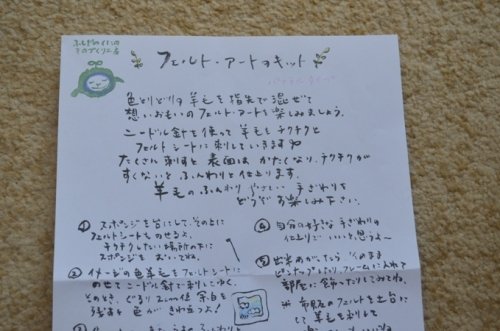 ものづくり工房
フェルト・アートのキット
色とりどりの羊毛を指先で混ぜて
想いおもいのフェルト・アートを楽しみましょう。
ニードル針を使って羊毛をチクチクと
フェルトシートに刺していきます
たくさん刺すと表面はかたくなり、チクチクが
すくないとふんわりと仕上ります。
羊毛のふんわりやさしい手ざわりを
どうぞお楽しみ下さい。
① スポンジを台にして、その上に
フェルトシートをのせるよ。
チクチクしたい場所の下に
スポンジを おいてね。
② イメージの色羊毛をフェルトシートに
のせてニードル針で刺してゆく。
そのとき、ぐるり2mm位 余白を
残すと色がきわ立つよ!
④ 自分の好きな手ざわりの
仕上りでいいと思うよ〜
⑤ 出来あがったら そのまま
ピンナップしたり、フレームに入れて
部屋に飾ったりしてみてね。
※ 市販のフェルトを土台に
して羊毛を刺して